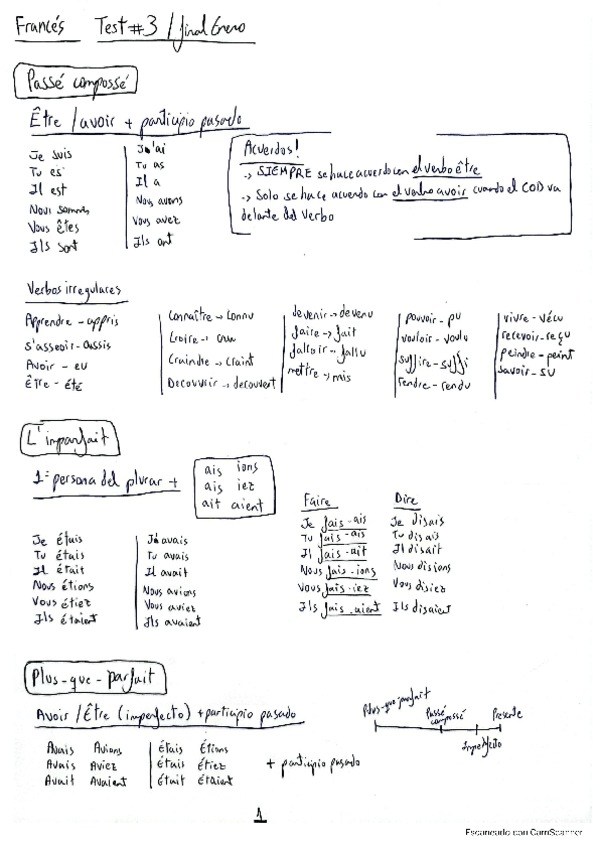 Francés Test #3 / final Enero
Passé compossé
Être / avoir + participio pasado
Je suis
Tu es
Il est
Nous sommes
Vous êtes
Ils sont
J'ai
Tu as
Il a
Nous avons
Vous avez
Ils ont
Acuerdos!
-> SIEMPRE se hace acuerdo con el verbo être
-> Solo se hace acuerdo con el verbo avoir cuando el COD va
delante del verbo
Verbos irregulares
Apprendre - appris
s'asseoir - assis
Avoir - eu
être - été
connaître -> connu
Croire -> cru
Craindre -> craint
Decouvrir -> decouvert
devenir -> devenu
faire -> fait
falloir -> fallu
mettre -> mis
pouvoir - pu
vouloir - voulu
suffire - suffi
rendre - rendu
vivre - vécu
recevoir - reçu
peindre - peint
savoir - su
L'imparfait
1ª persona del plurar +
ais ions
ais iez
ait aient
Je étais
Tu étais
Il était
Nous étions
Vous étiez
Ils étaient
J'avais
Tu avais
Il avait
Nous avions
Vous aviez
Ils avaient
Faire
Je fais-ais
Tu fais-ais
Il fais-ait
Nous fais-ions
Vous fais-iez
Ils fais-aient
Dire
Je disais
Tu disais
Il disait
Nous disions
Vous disiez
Ils disaient
Plus-que-parfait
Avoir / Être (imperfecto) + participio pasado
Avais Avions
Avais Aviez
Avait Avaient
étais étions
étais étiez
était étaient
+ participio pasado
Plus-que-parfait
Passé compossé
Imperfecto
Presente
1
Escaneado con CamScanner